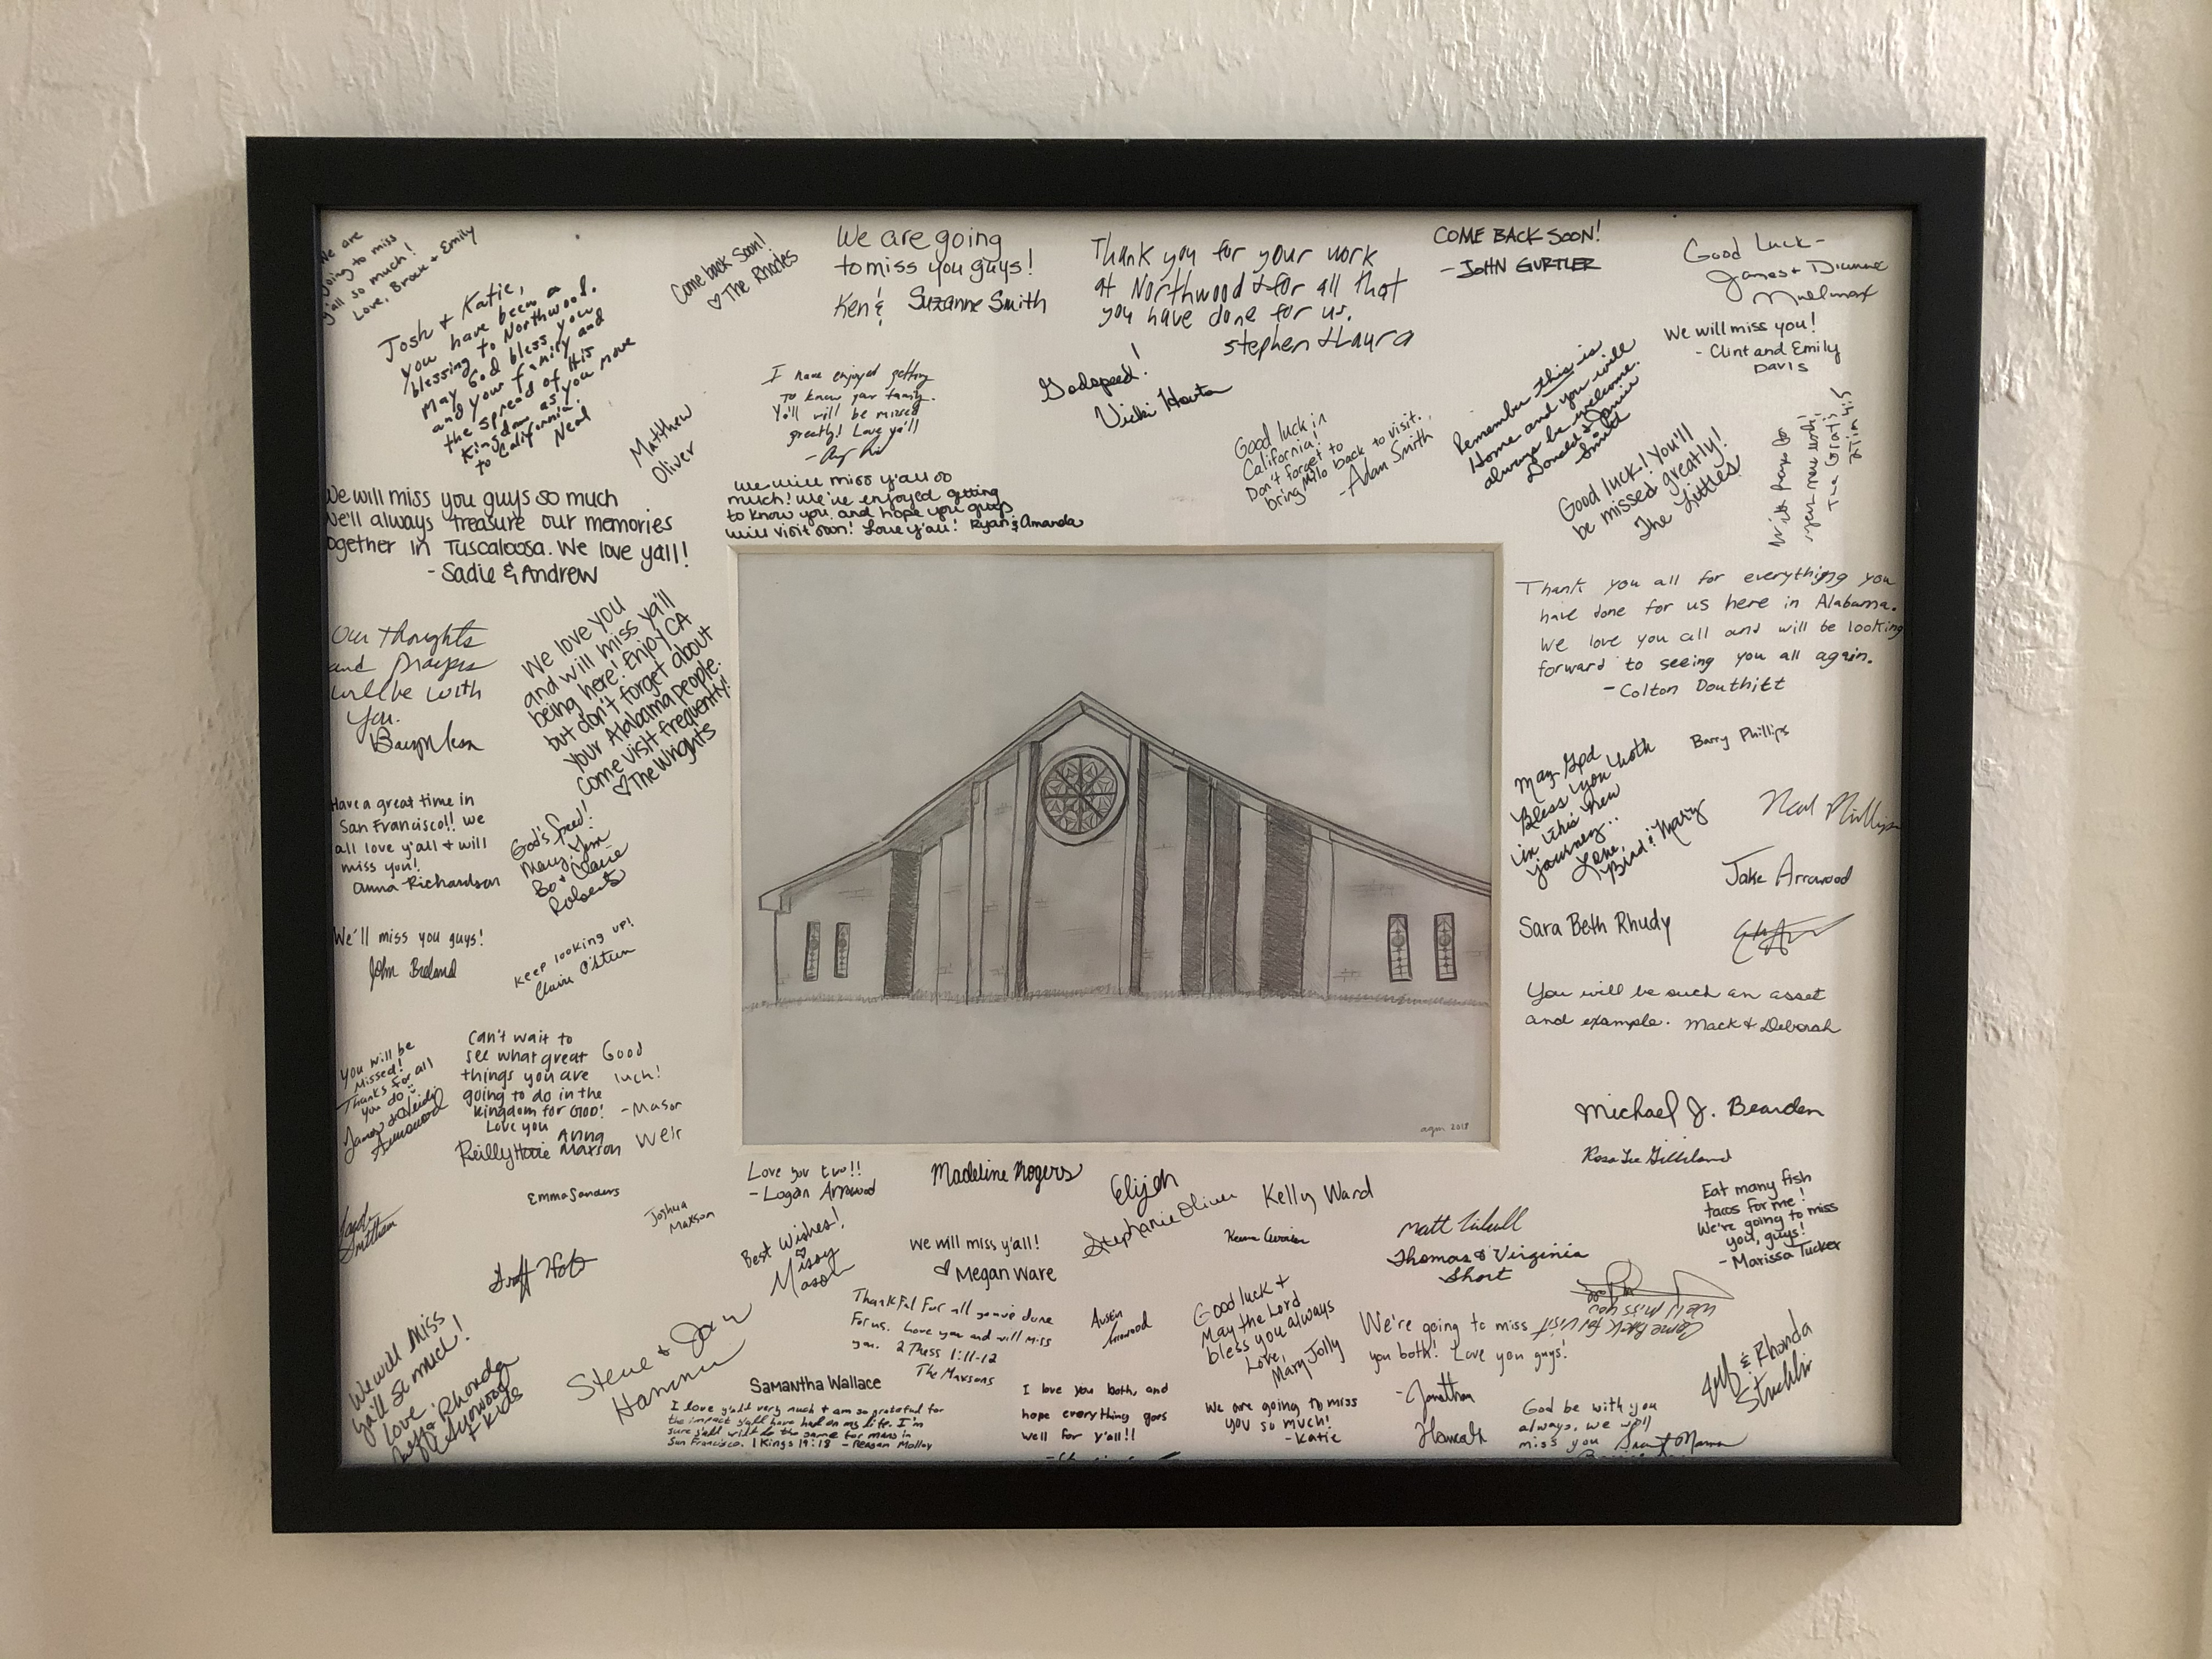 We are
going to miss
y'all so much!
Love, Brock + Emily
Josh + Katie,
you have been a
blessing to Northwood.
May God bless you
and your family and
the spread of His
Kingdom as you move
to California.
Neal
Come back Soon!
♡ The Rhodes
We are going
to miss you guys!
Ken & Suzanne Smith
Thank you for your work
at Northwood & for all that
you have done for us.
Stephen & Laura
COME BACK SOON!
- JOHN GURTLER
Good Luck -
James + Dianne
We will miss you!
- Clint and Emily
Davis
Matthew
Oliver
I have enjoyed getting
to know your family.
Y'all will be missed
greatly! Love ya'll
Godspeed!
Vicki Horton
Good luck in
California!
Don't forget to
bring Milo back to visit.
- Adam Smith
Remember this is
Home and you will
always be welcome.
Donald & Jamie
Smith
Good luck! You'll
be missed greatly!
The Littles
With prayers for
your new work!
2 Tim 4:5
We will miss y'all so
much! We've enjoyed getting
to know you and hope you guys
will visit soon! Love y'all! Ryan & Amanda
We will miss you guys so much
We'll always treasure our memories
together in Tuscaloosa. We love yall!
- Sadie & Andrew
Our thoughts
and prayers
will be with
you.
We love you
and will miss ya'll
being here! Enjoy CA
but don't forget about
your Alabama people.
Come visit frequently!
♡ The Wrights
Thank you all for everything you
have done for us here in Alabama.
We love you all and will be looking
forward to seeing you all again.
- Colton Douthitt
May God
Bless you both
in this new
journey..
Love,
Bird & Mary
Barry Phillips
Neal Phillips
Jake Arrowood
Sara Beth Rhudy
Have a great time in
San Francisco!! we
all love y'all + will
miss you!
Anna Richardson
God's speed!
Mary Ann
Bo + Claire
Roberts
We'll miss you guys!
John Breland
Keep looking up!
Claire O'Steen
You will be such an asset
and example. Mack & Deborah
You will be
Missed!
Thanks for all
you do
James & Heidi
Arrowood
Can't wait to
see what great
things you are
going to do in the
Kingdom for GOD!
Love you
Reilly Howie Anna
Maxson
Good
luck!
- Mason
Weir
Michael J. Bearden
Rosa Lee Gilliland
agm 2018
Love you two!!
- Logan Arrowood
Madeline Rogers
Elijah
Stephanie Oliver
Kelly Ward
Eat many fish
tacos for me!
We're going to miss
you, guys!
- Marissa Tucker
Emma Sanders
Joshua
Maxson
Best Wishes!
Missy
Mason
We will miss y'all!
♡ Megan Ware
Matt
Thomas & Virginia
Short
We'll Miss you
Come Back for Visit
Thankful for all you've done
for us. Love you and will miss
you. 2 Thess 1:11-12
The Maxsons
Austin
Arrowood
Good luck +
May the Lord
bless you always
Love,
Mary Jolly
We're going to miss
you both! Love you guys!
- Jonathan
Hannah
& Rhonda
Stricklin
We will miss
ya'll so much!
love Rhonda
kids
Steve + Jan
Hamm
Samantha Wallace
I love y'all very much + am so grateful for
the impact y'all have had on my life. I'm
sure y'all will do the same for many in
San Francisco. 1 Kings 19:18 - Reagan Malloy
I love you both, and
hope everything goes
well for y'all!!
We are going to miss
you so much!
- Katie
God be with you
always, we will
miss you